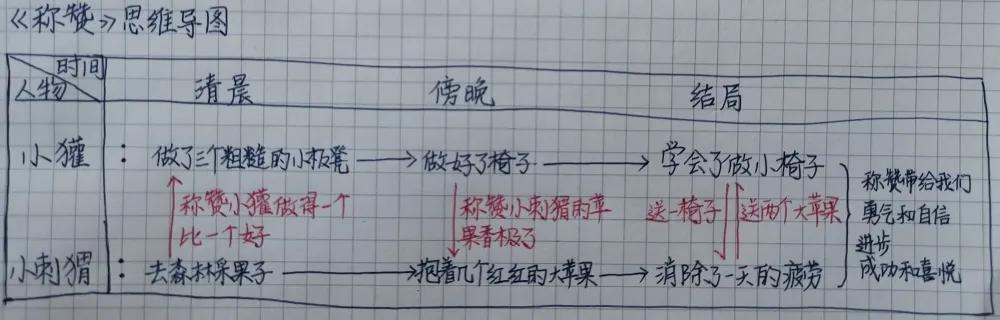 《称赞》思维导图
时间
人物
清晨
傍晚
结局
小獾
：
做了三个粗糙的小板凳
做好了椅子
学会了做小椅子
称赞小獾做得一个
比一个好
称赞小刺猬的苹
果香极了
送一椅子
送两个大苹果
小刺猬
：
去森林采果子
抱着几个红红的大苹果
消除了一天的疲劳
称赞带给我们
勇气和自信
进步
成功和喜悦